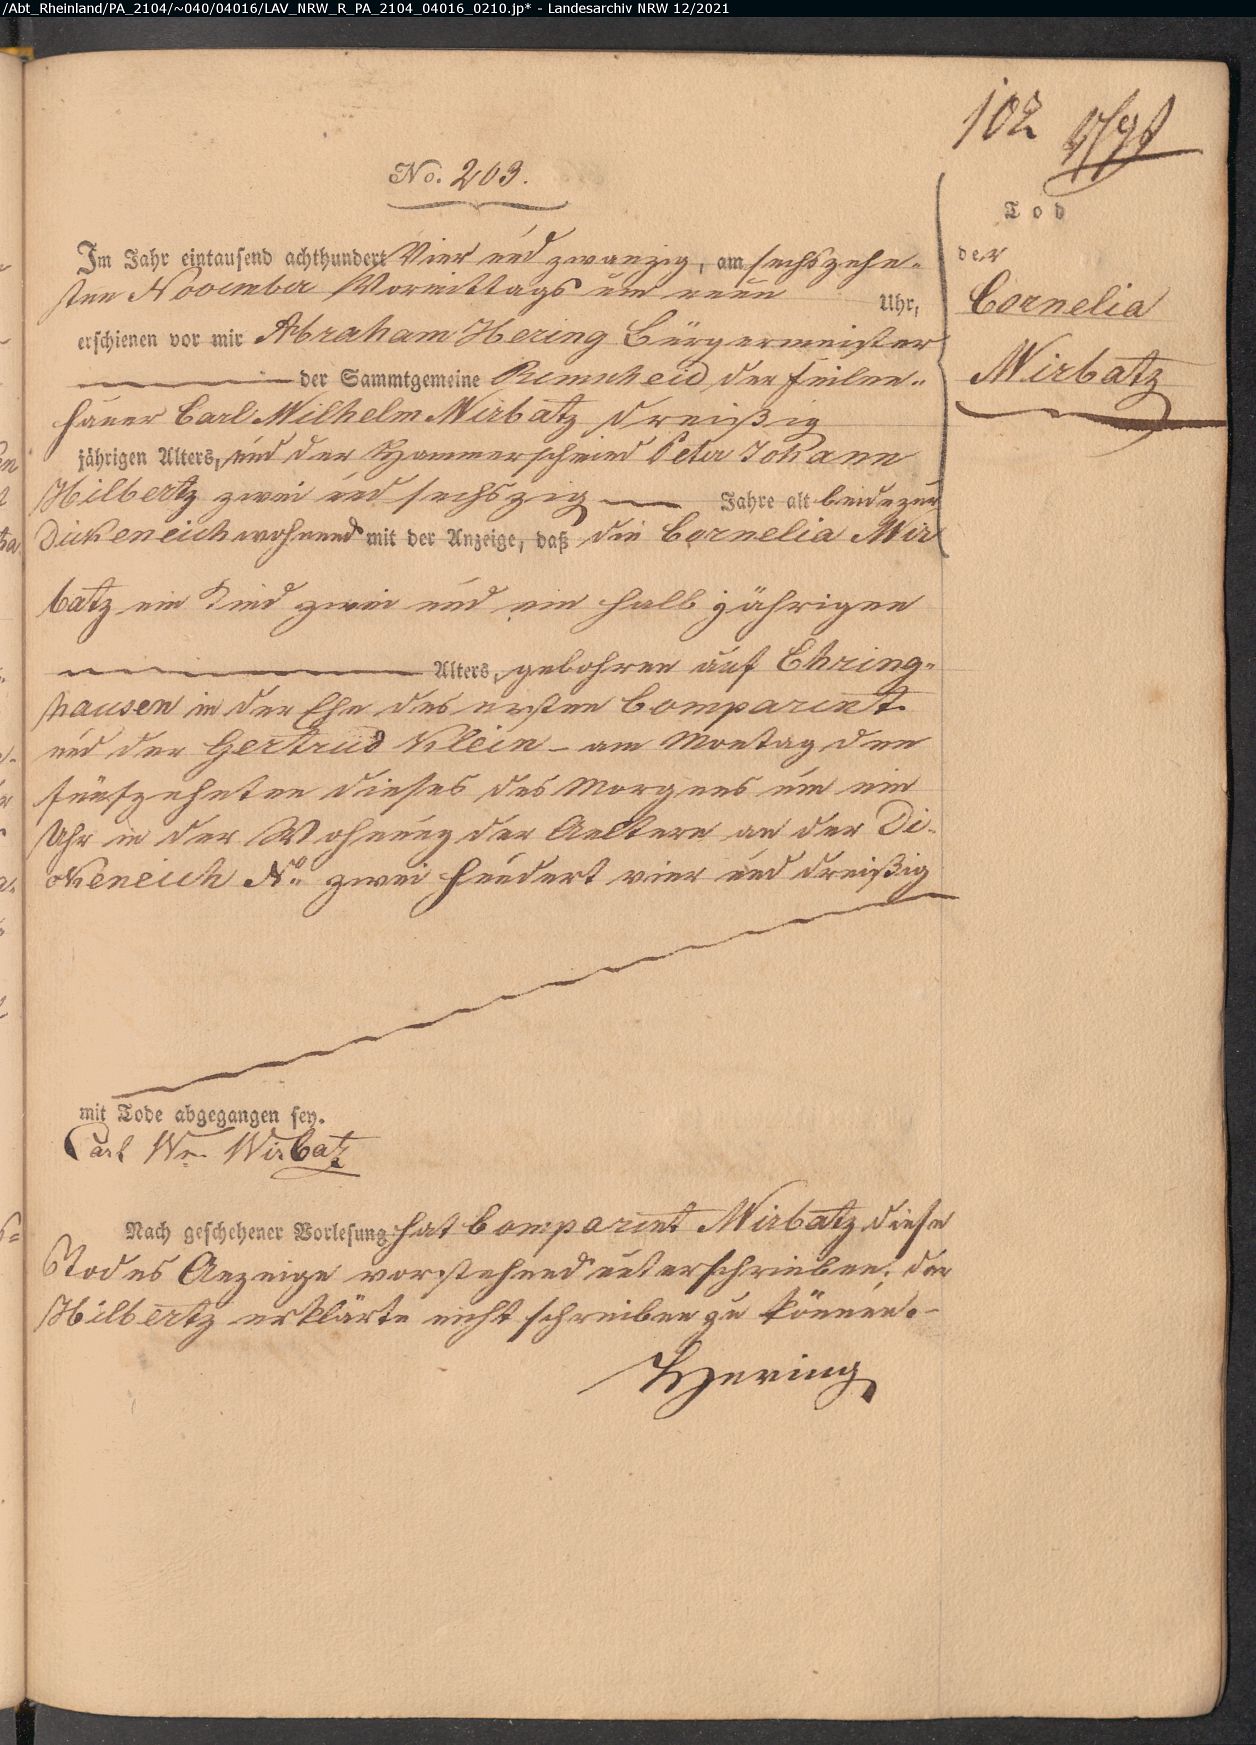 /Abt_Rheinland/PA_2104/~040/04016/LAV_NRW_R_PA_2104_04016_0210.jp* - Landesarchiv NRW 12/2021
102
No. 203.
Tod
der
Cornelia
Wirbatz
Im Jahr eintausend achthundert Vier und zwanzig, am sechszehn-
ten November Vormittags um neun Uhr,
erschienen vor mir Abraham Hering Bürgermeister
der Sammtgemeine Remscheid der Feilen-
hauer Carl Wilhelm Wirbatz dreißig
jährigen Alters, und der Hammerschmied Peter Johann
Hilbertz zwei und sechszig Jahre alt beide zur
Dickeneich wohnend mit der Anzeige, daß die Cornelia Wir
batz ein Kind zwei und ein halb jährigen
Alters, gebohren auf Ehring-
hausen in der Ehe des ersten Comparent
und der Gertrud Klein - am Montag den
fünfzehnten dieses des Morgens um ein
Uhr in der Wohnung der Aeltern an der Di-
ckeneich No. zwei hundert vier und dreißig
mit Tode abgegangen sey.
Carl Wm. Wirbatz
Nach geschehener Vorlesung hat Comparent Wirbatz diese
Todes Anzeige vorstehend unterschrieben; der
Hilbertz erklärte nicht schreiben zu können.-
Hering